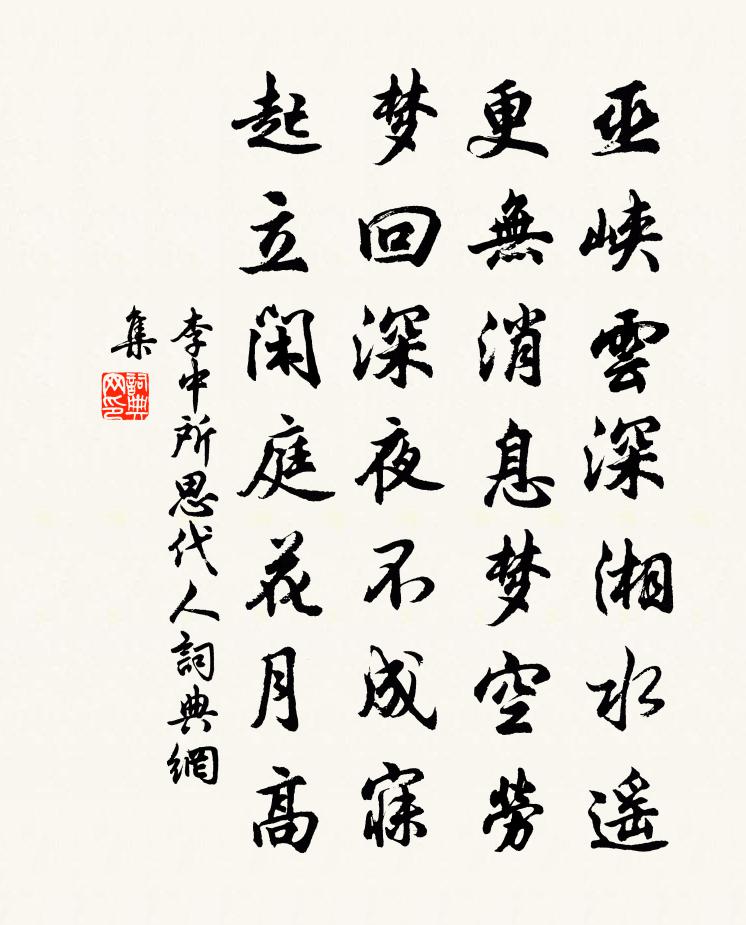 巫峽雲深湘水遥
更無消息梦空勞
梦回深夜不成寐
起立閑庭花月高
李中所思代人詞典網
集
詞典
网印